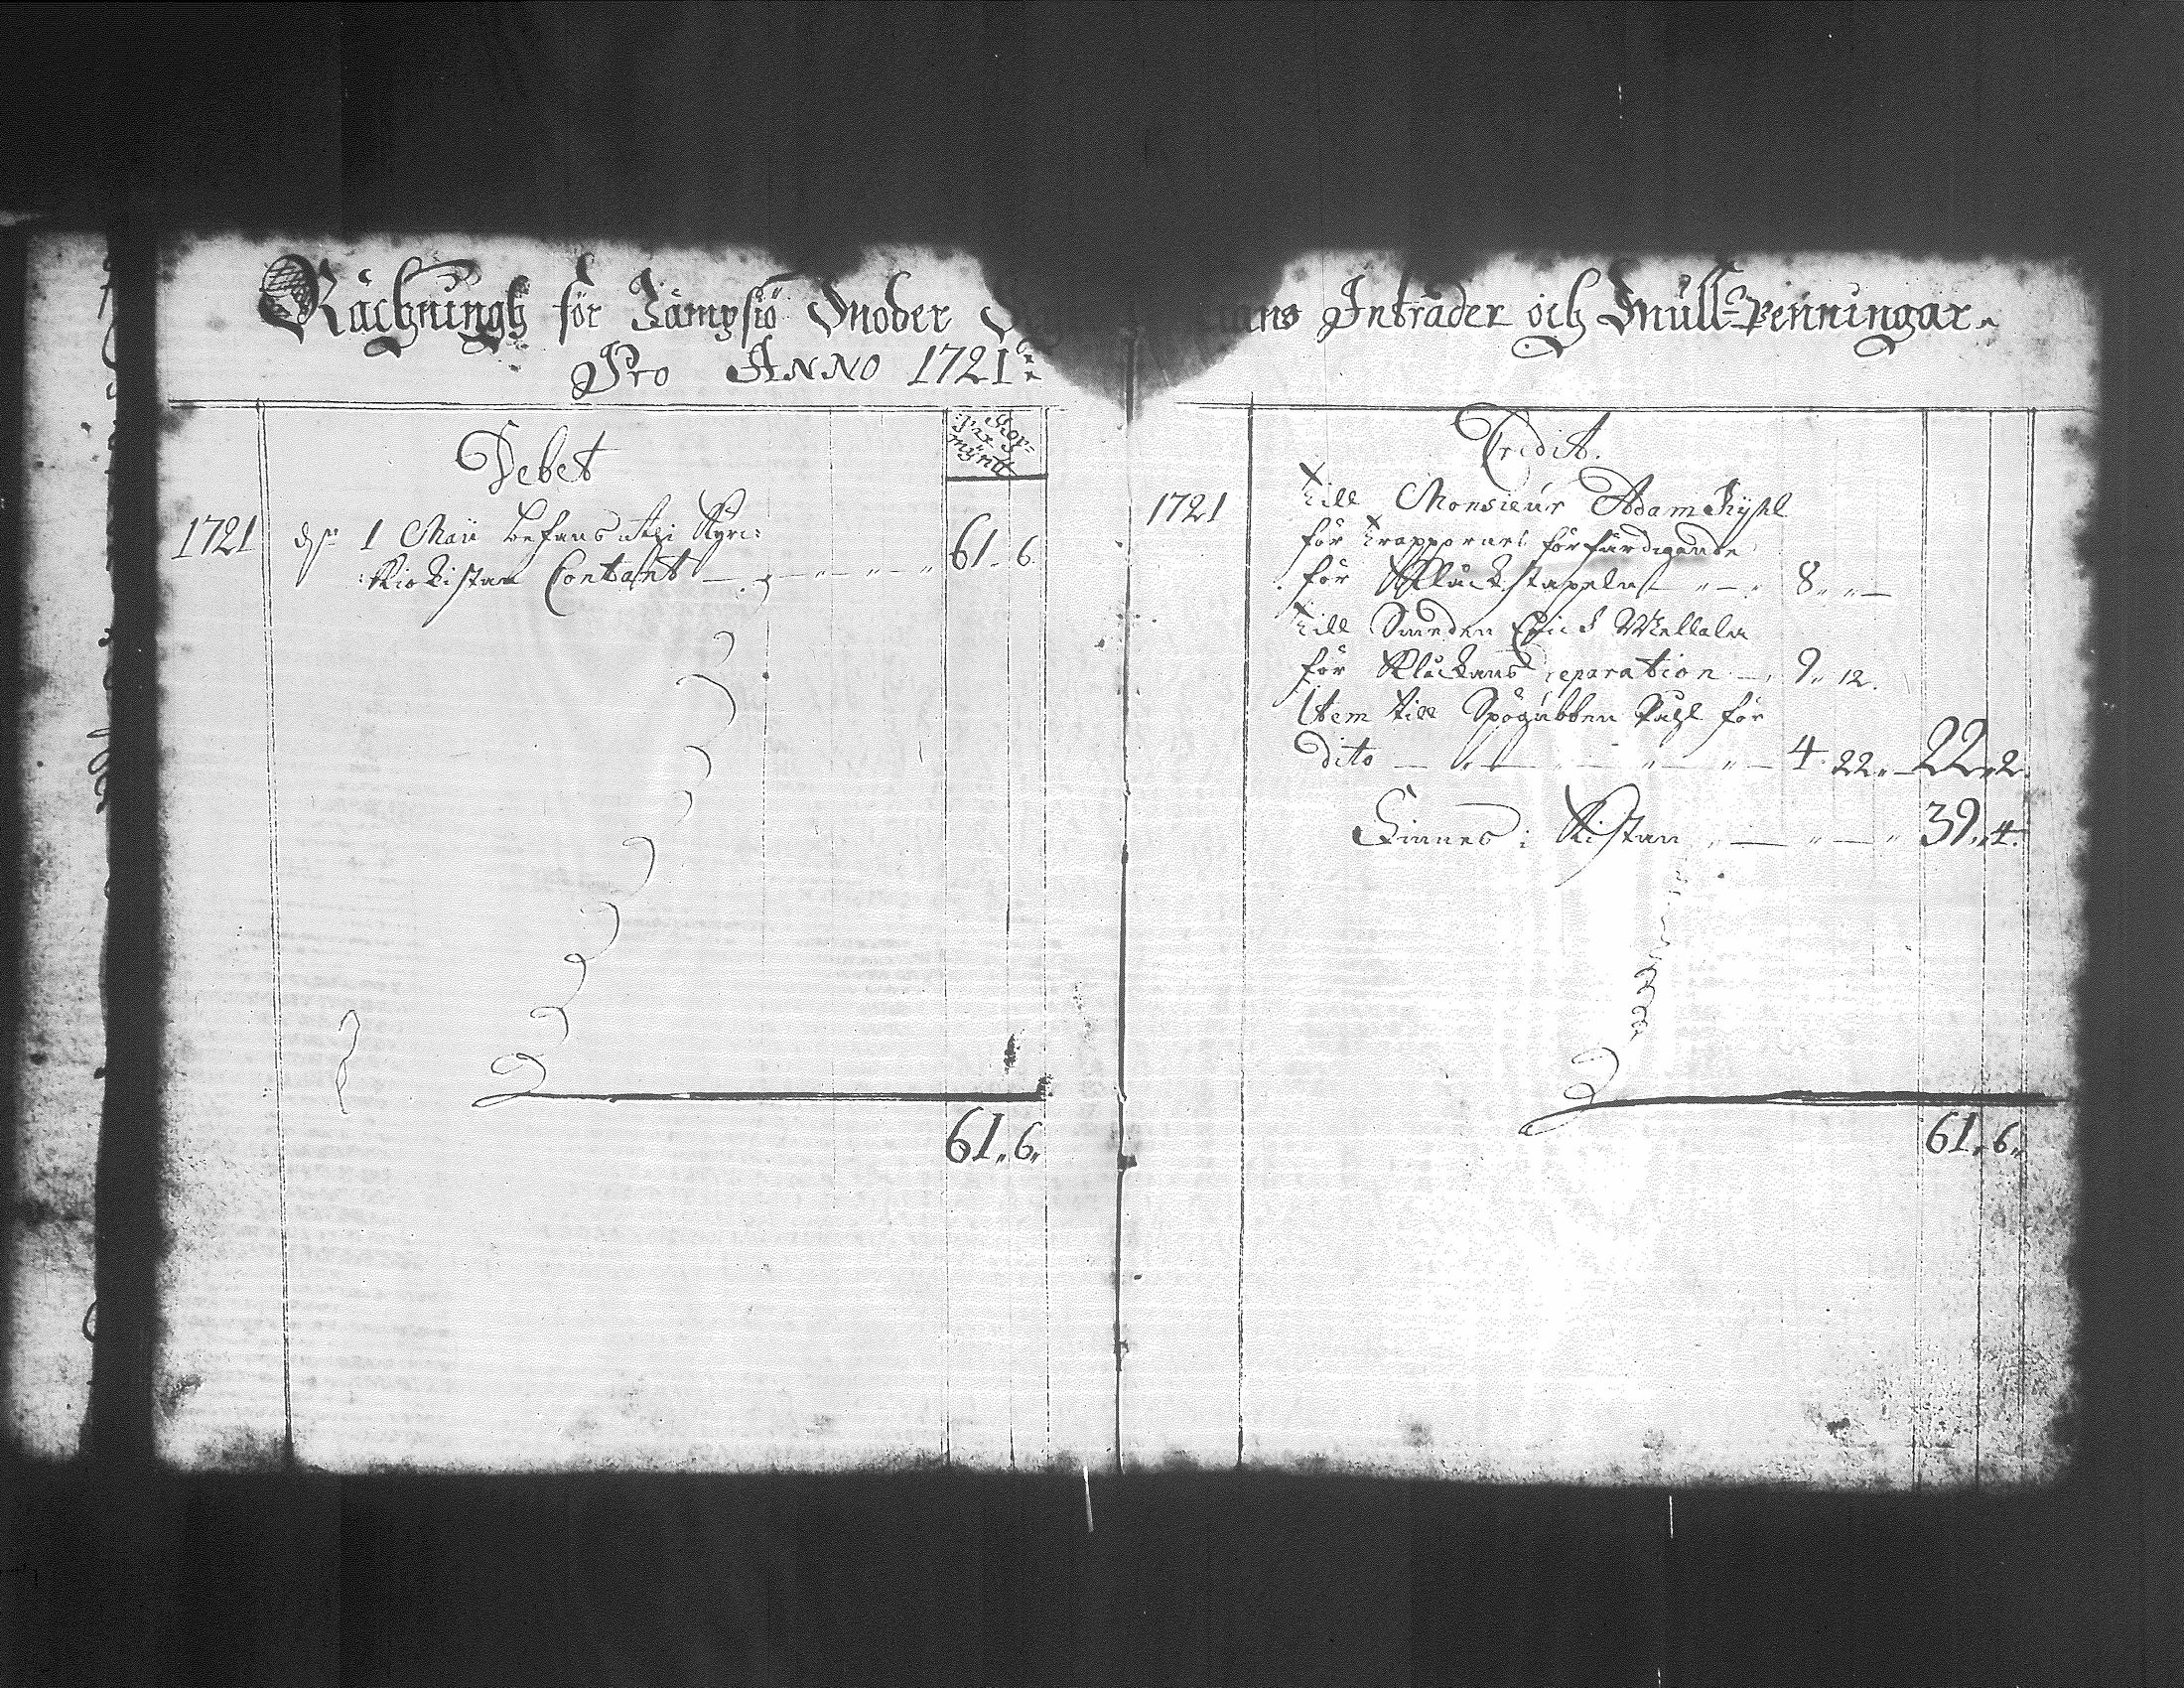 Rächningh för Kämpsiö Moder
ans Inträder och Mull-Penningar.
Pro ANNO 1721
Debet
Kop-
par
mÿntt
1721 d. 1 Maii befans uthi Kyrc:
kiokistan Contant 61 6
61 6
Credit.
1721 till Monsieur Adam
för trappornes förfärdigande
för Klåckstapelen 8
till Smeden Erick
för Klåckans reparation 9 12.
Item till för
dito 4 22 22 2
Finnes i Kistan 39 4.
61 6